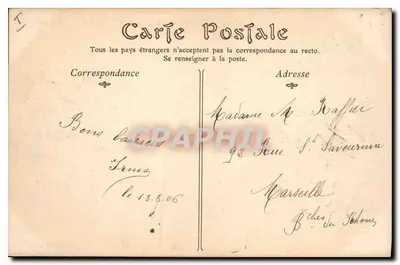 I
Carte Postale
Tous les pays étrangers n'acceptent pas la correspondance au recto.
Se renseigner à la poste.
Correspondance
Adresse
Madame M. Raffier
Bons baisers
92 Rue St Saveurnin
Irma
le 13.5.06
Marseille
Bches du Rhône
CPRAPHIL